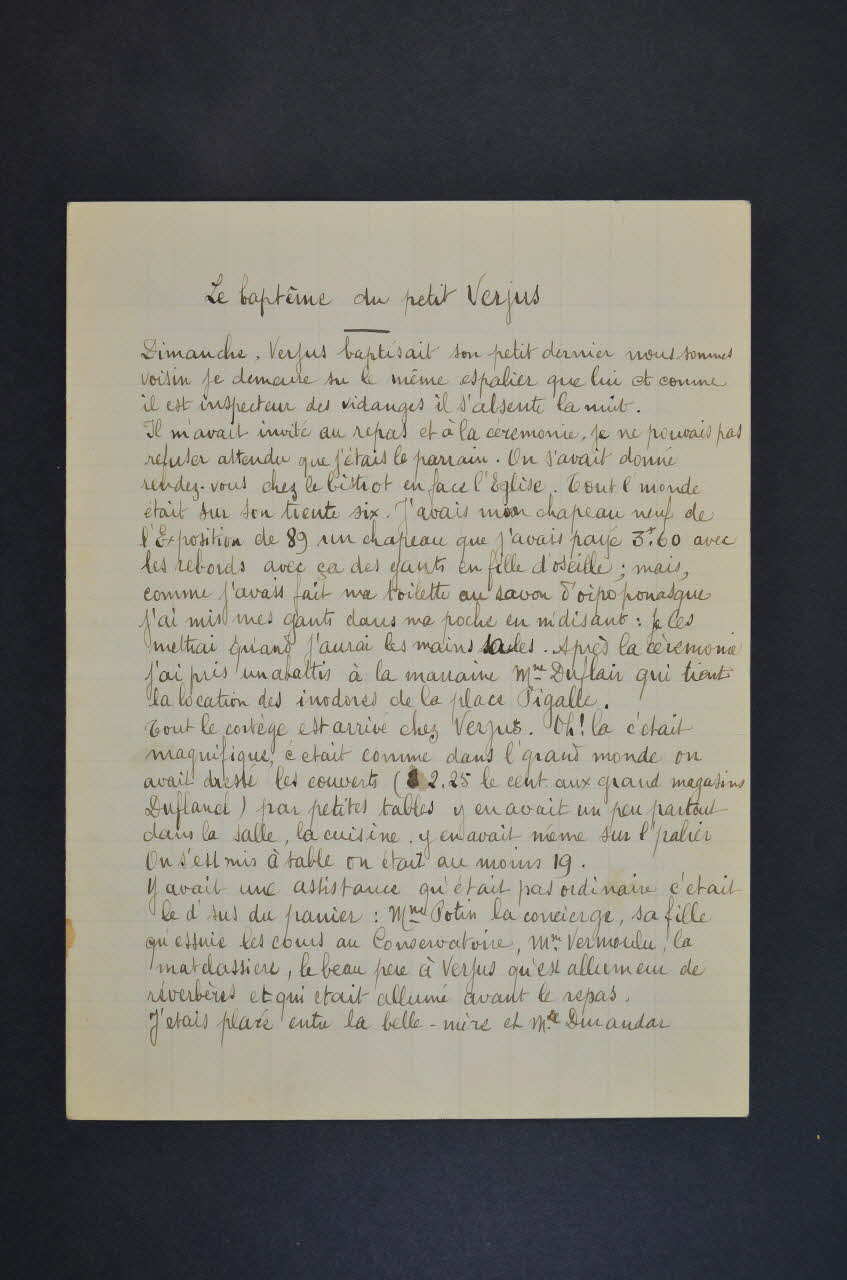 Le baptême du petit Verjus
Dimanche, Verjus baptisait son petit dernier nous sommes
voisin je demeure su le même espalier que lui et comme
il est inspecteur des vidanges il s'absente la nuit.
Il m'avait invité au repas et à la cérémonie, je ne pouvais pas
refuser attendu que j'étais le parrain. On s'avait donné
rendez-vous chez le bistrot en face l'Eglise. Tout l'monde
était sur son trente six. J'avais mon chapeau neuf de
l'Exposition de 89 un chapeau que j'avais payé 3f.60 avec
les rebords avec ça des gants en fille d'oseille ; mais,
comme j'avais fait ma toilette au savon d'oipoponasque
j'ai mis mes gants dans ma poche en m'disant : je les
mettrai quand j'aurai les mains sales. Après la cérémonie
j'ai pris un abattis à la marraine Mme Duflair qui tient
la location des inodores de la place Pigalle.
Tout le cortège est arrivé chez Verjus. Oh! la c'était
magnifique, c'etait comme dans l'grand monde on
avait dressé les couverts (2.25 le cent aux grand magasins
Duflanel) par petites tables y en avait un peu partout
dans la salle, la cuisine, y en avait même sur l'palier
On s'est mis à table on était au moins 19.
Y avait une assistance qu'était pas ordinaire c'était
le d'sus du panier : Mme Potin la concierge, sa fille
qu'essuie les cours au Conservatoire, Mme Vermoulu, la
matelassière, le beau père à Verjus qu'est allumeur de
réverbères et qui était allumé avant le repas.
J'etais placé entre la belle-mère et Mlle Dumandar